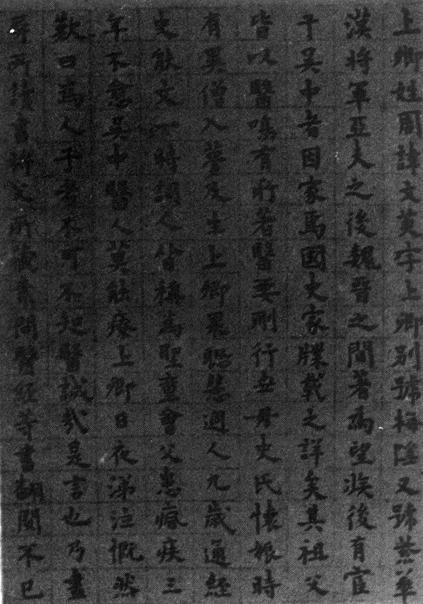 上卿姓周諱文英字上卿別號梅隱又號紫華
漢將軍亞夫之後魏晉之間著為望族後有宦
于吳中者因家焉國史家牒載之詳矣其祖父
皆以醫鳴有所著醫要刑行世母史氏懷娠時
有異僧入夢及生上卿果聰慧過人九歲通經
史能文一時詞人皆稱為聖童會父患癱疾三
年不愈吳中醫人莫能療上卿日夜涕泣慨然
歎曰為人子者不可不知醫誠哉是言也乃盡
所讀書將父所藏素問醫經等書翻閱不已